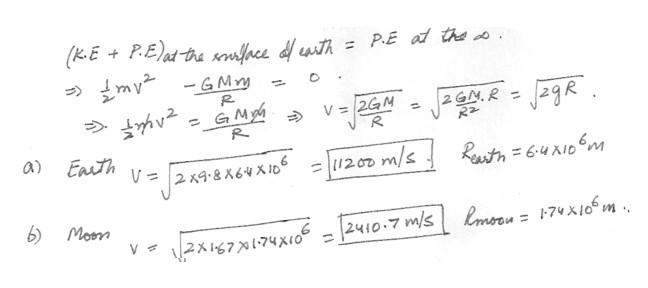 (K.E + P.E) at the surface of earth = P.E at the ∞.
⇒ 1/2 mv² - GMm/R = 0.
⇒ 1/2 mv² = GMm/R ⇒ v = √(2GM/R) = √(2GM.R/R²) = √(2gR).
a) Earth v = √(2×9.8×6.4×10⁶) = 11200 m/s Rearth = 6.4×10⁶m
b) Moon v = √(2×1.67×1.74×10⁶) = 2410.7 m/s Rmoon = 1.74×10⁶m..